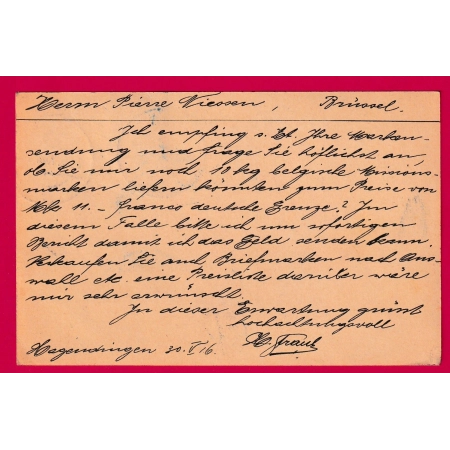 Herrn Pierre Niessen, Brüssel.
Ich empfing s. Zt. Ihre Marken-
sendung und frage Sie höflichst an,
ob Sie mir noch 10 kg belgische Missions-
marken liefern könnten zum Preise von
Mk 11. franco deutsche Grenze? In
diesem Falle bitte ich um sofortigen
Bericht damit ich das Geld senden kann.
Verkaufen Sie auch Briefmarken nach Aus-
wahl etc. eine Preisliste darüber wäre
mir sehr erwünscht.
In dieser Erwartung grüsst
hochachtungsvoll
Hagendingen 30.V.16. H. Traut